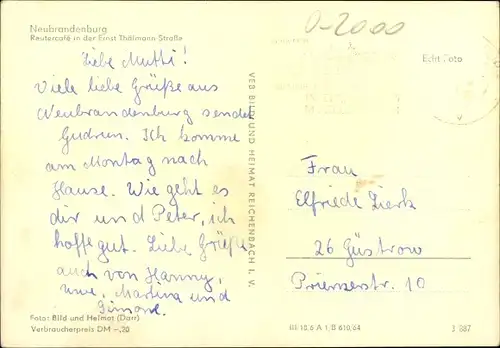 Neubrandenburg
Reutercafé in der Ernst Thälmann-Straße
Liebe Mutti!
Viele liebe Grüße aus
Neubrandenburg sendet
Gudrun. Ich komme
am Montag nach
Hause. Wie geht es
dir und Peter, ich
hoffe gut. Liebe Grüße
auch von Hanny,
Uwe, Martina und
Simone.
Foto: Bild und Heimat (Darr)
Verbraucherpreis DM -,20
VEB BILD UND HEIMAT REICHENBACH I. V.
0-2000
Echt Foto
Frau
Elfriede Zierk
26 Güstrow
Priemerstr. 10
III-10,6 A 1/B 610/64
3 887